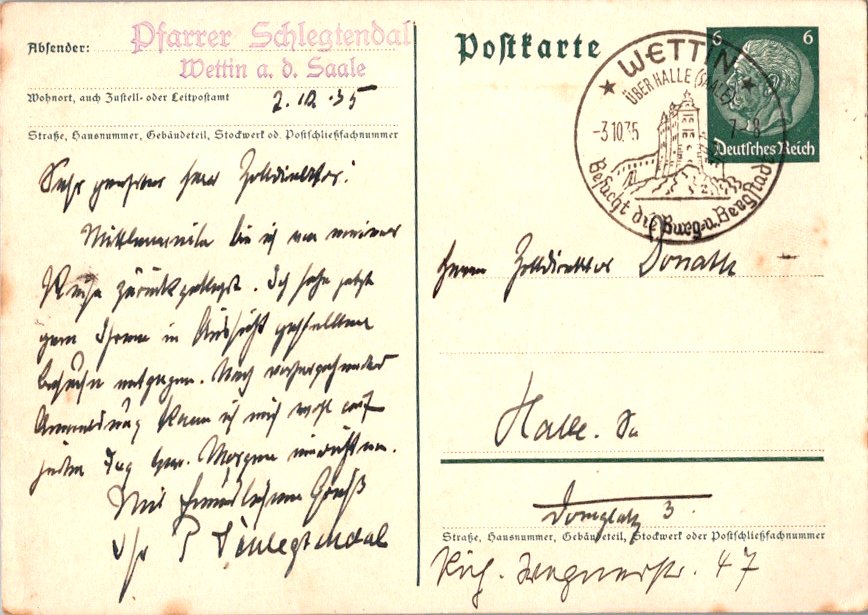 Absender:
Pfarrer Schlegtendal
Wettin a. d. Saale
Wohnort, auch Zustell- oder Leitpostamt
2.10.35
Straße, Hausnummer, Gebäudeteil, Stockwerk od. Postschließfachnummer
Sehr geehrter Herr Zolldirektor!
Mittlerweile bin ich von meiner
Reise zurückgekehrt. Ich sehe jetzt
gern Ihrem in Aussicht gestellten
Besuche entgegen. Nach vorhergehender
Anmeldung kann ich mich wohl auf
jeden Tag bzw. Morgen einrichten.
Mit freundlichem Gruß
Ihr P Schlegtendal
Postkarte
6 6
Deutsches Reich
WETTIN
ÜBER HALLE (SAALE)
-3.10.35 7-8
Besucht die Burg- u. Bergstadt
Herrn Zolldirektor Donath
Halle. Sa
Domplatz 3.
Straße, Hausnummer, Gebäudeteil, Stockwerk oder Postschließfachnummer
Rich. Wagnerstr. 47